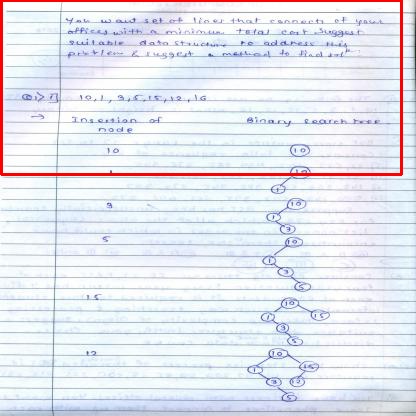 You want set of lines that connects of your
offices with a minimum total cost. Suggest
suitable data structure to address this
problem & suggest a method to find solⁿ.
10, 1, 3, 5, 15, 12, 16
→ Insertion of Binary search tree
node
10 10
1 10
1
3 10
1
3
5 10
1
3
5
15 10
1 15
3
5
12 10
1 15
3 12
5